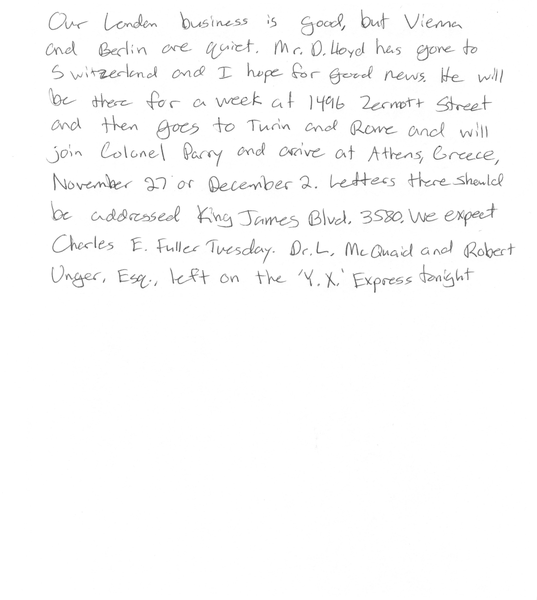 Our London business is good, but Vienna
and Berlin are quiet. Mr. D. Lloyd has gone to
Switzerland and I hope for good news. He will
be there for a week at 1496 Zermott Street
and then goes to Turin and Rome and will
join Colonel Parry and arrive at Athens, Greece,
November 27 or December 2. Letters there should
be addressed King James Blvd. 3580. We expect
Charles E. Fuller Tuesday. Dr. L. McQuaid and Robert
Unger, Esq., left on the 'Y.X.' Express tonight